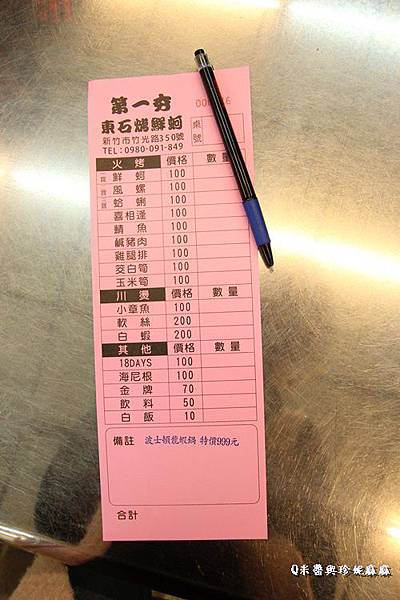 第一夯
東石烤鮮蚵
新竹市竹光路350號
TEL:0980-091-849
桌號
火烤 價格 數量
鮮蚵 100
風螺 100
蛤蜊 100
喜相逢 100
鯖魚 100
鹹豬肉 100
雞腿排 100
筊白筍 100
玉米筍 100
川燙 價格 數量
小章魚 100
軟絲 200
白蝦 200
其他 價格 數量
18DAYS 100
海尼根 100
金牌 70
飲料 50
白飯 10
備註 波士頓龍蝦鍋 特價999元
合計
Q米醬與珍妮麻麻